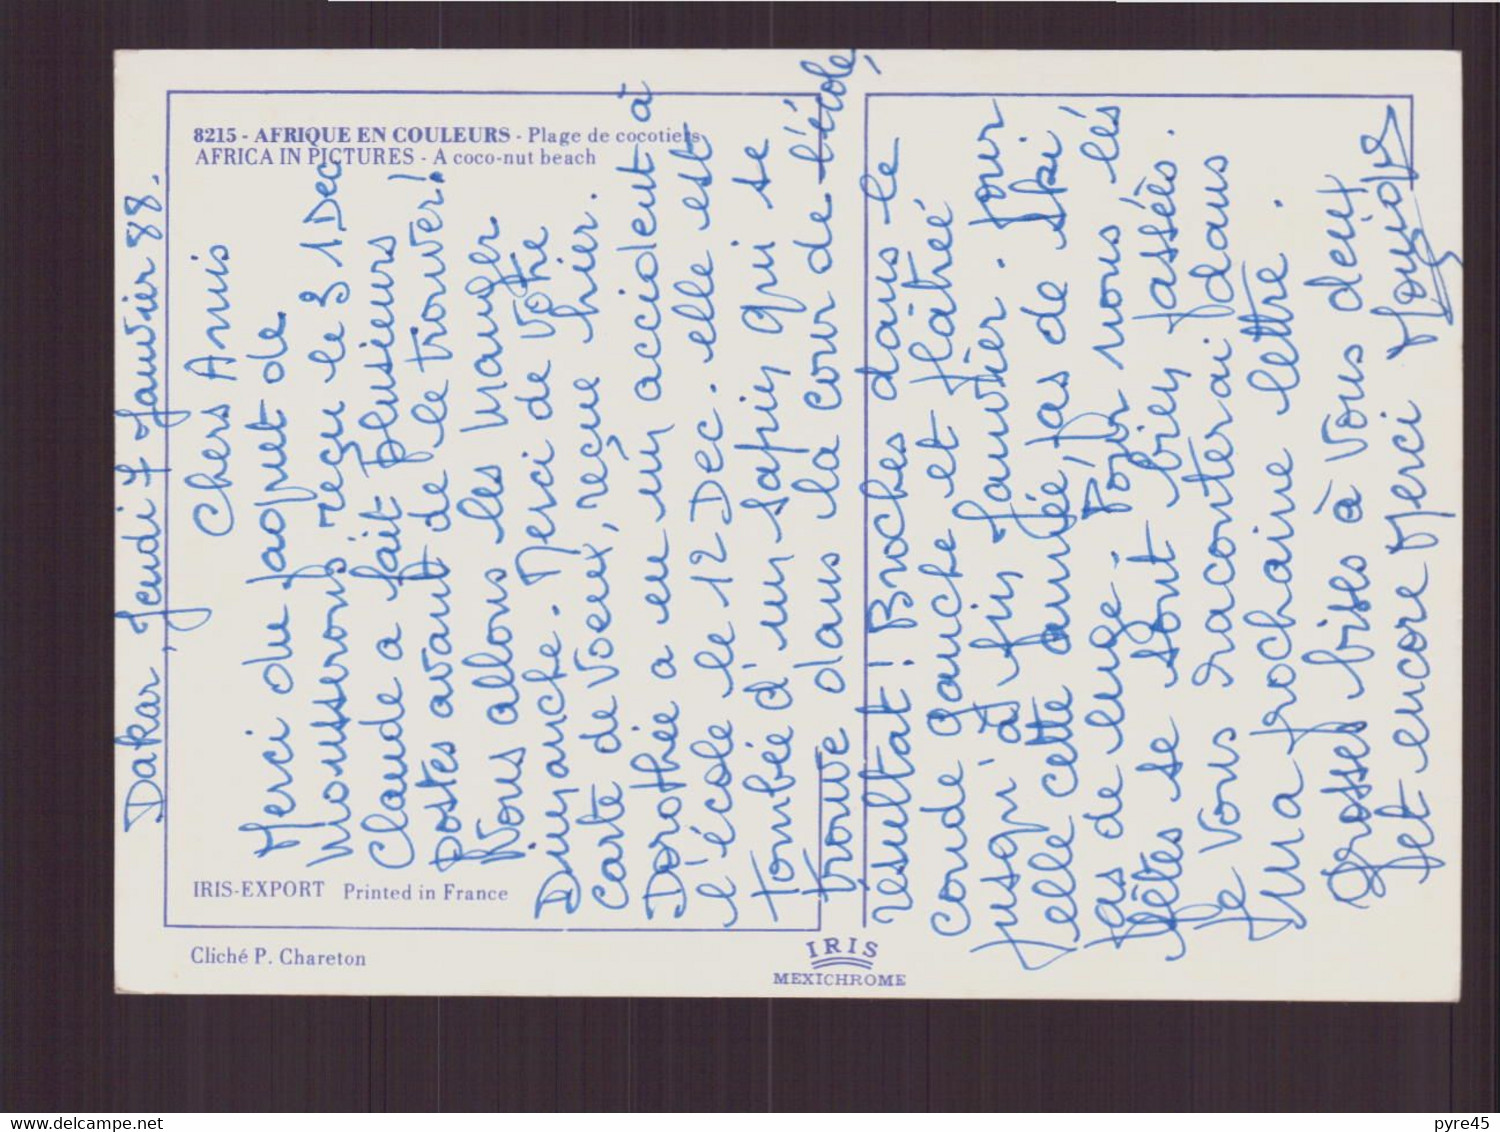 8215 - AFRIQUE EN COULEURS - Plage de cocotiers
AFRICA IN PICTURES - A coco-nut beach
Dakar, Jeudi 7 Janvier 88.
Chers Amis
Merci du paquet de
Mousserons reçu le 31 Dec
Claude a fait plusieurs
postes avant de le trouver!
Nous allons les manger
Dimanche. Merci de votre
carte de Voeux, reçue hier.
Dorothée a eu un accident à
l'école le 12 Dec. elle est
tombée d'un sapin qui se
trouve dans la cour de l'école,
resultat! Broches dans le
coude gauche et plâtrée
jusqu'à fin Janvier. Pour
elle cette année, pas de Ski
pas de luge. Pour nous les
fêtes se sont bien passées.
Je Vous raconterai dans
ma prochaine lettre.
Grosses bises à Vous deux
et encore Merci
IRIS-EXPORT Printed in France
Cliché P. Chareton
IRIS
MEXICHROME
pyre45